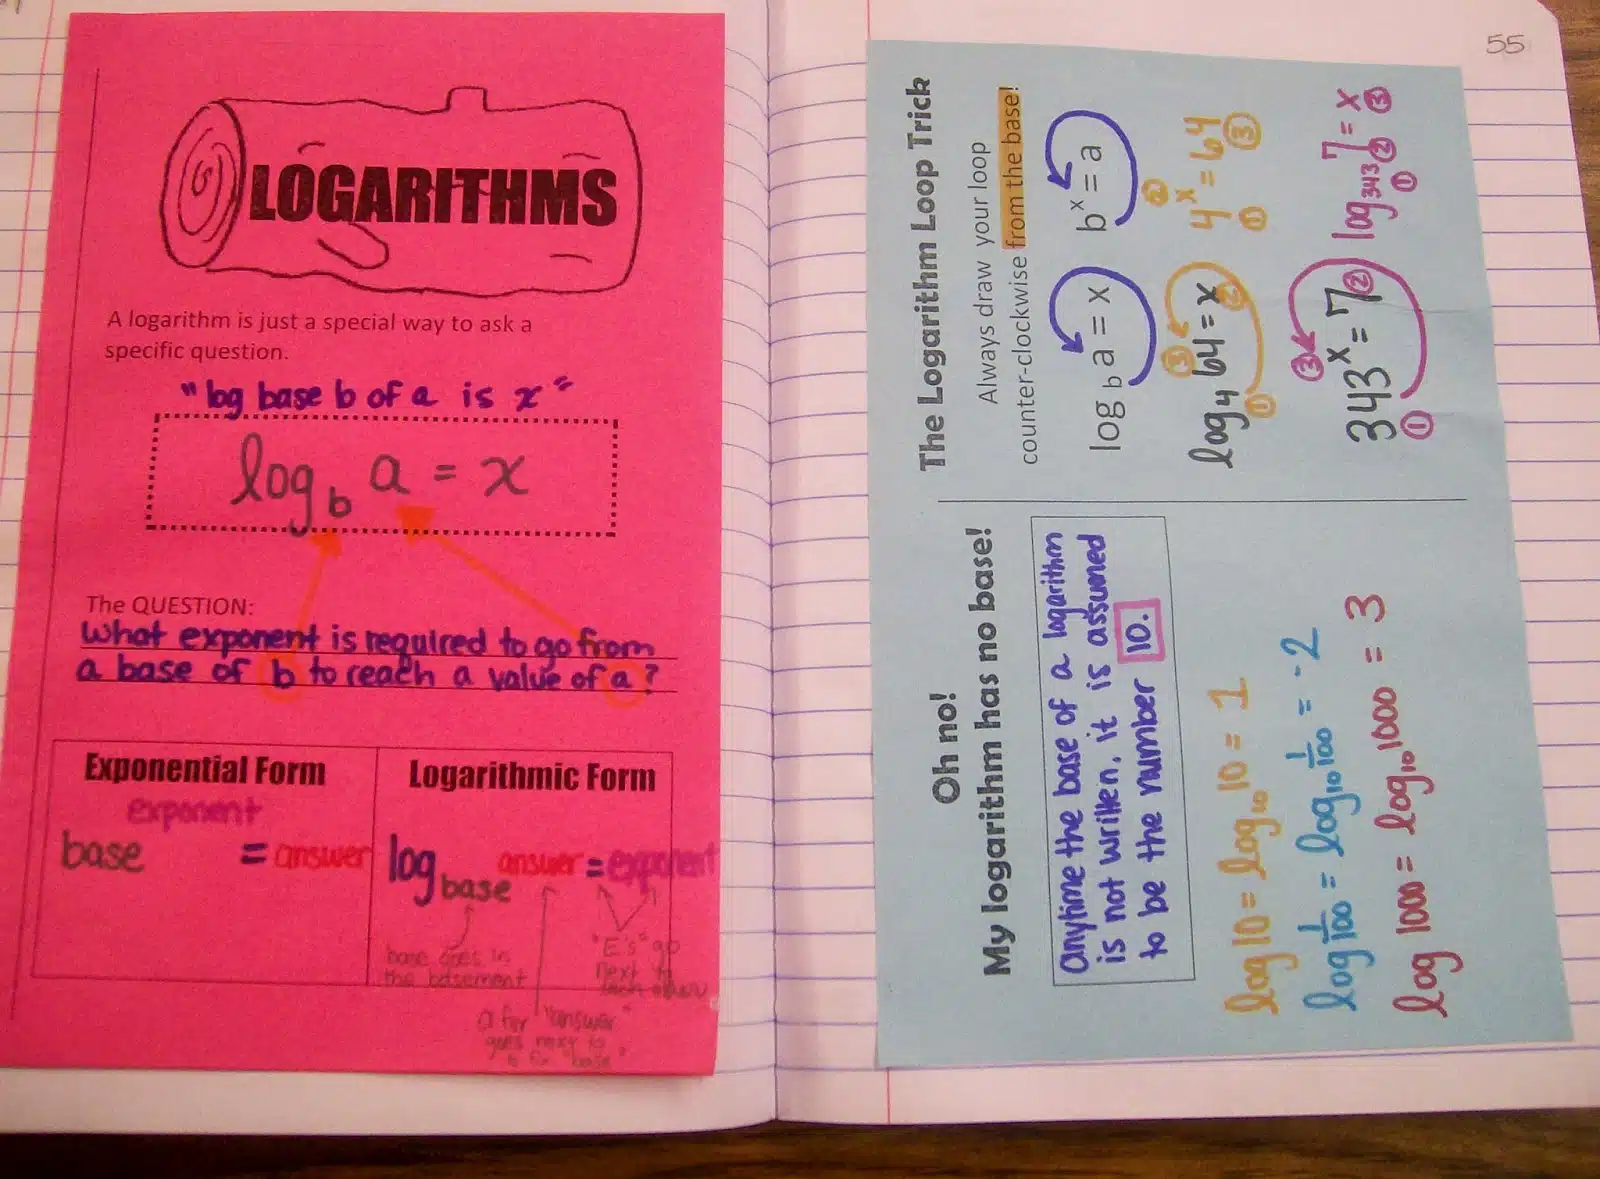 LOGARITHMS
A logarithm is just a special way to ask a
specific question.
"log base b of a is x"
log_b a = x
The QUESTION:
What exponent is required to go from
a base of b to reach a value of a?
Exponential Form
exponent
base = answer
Logarithmic Form
log_base answer = exponent
base goes in
the basement
"E's" go
next to
each other
a for "answer"
goes next to
b for "base"
55
The Logarithm Loop Trick
Always draw your loop
counter-clockwise from the base!
log_b a = x b^x = a
log_4 64 = x 4^x = 64
① ③ ② ① ② ③
343^x = 7 log_343 7 = x
① ③ ② ① ② ③
Oh no!
My logarithm has no base!
Anytime the base of a logarithm
is not written, it is assumed
to be the number 10.
log 10 = log_10 10 = 1
log 1/100 = log_10 1/100 = -2
log 1000 = log_10 1000 = 3